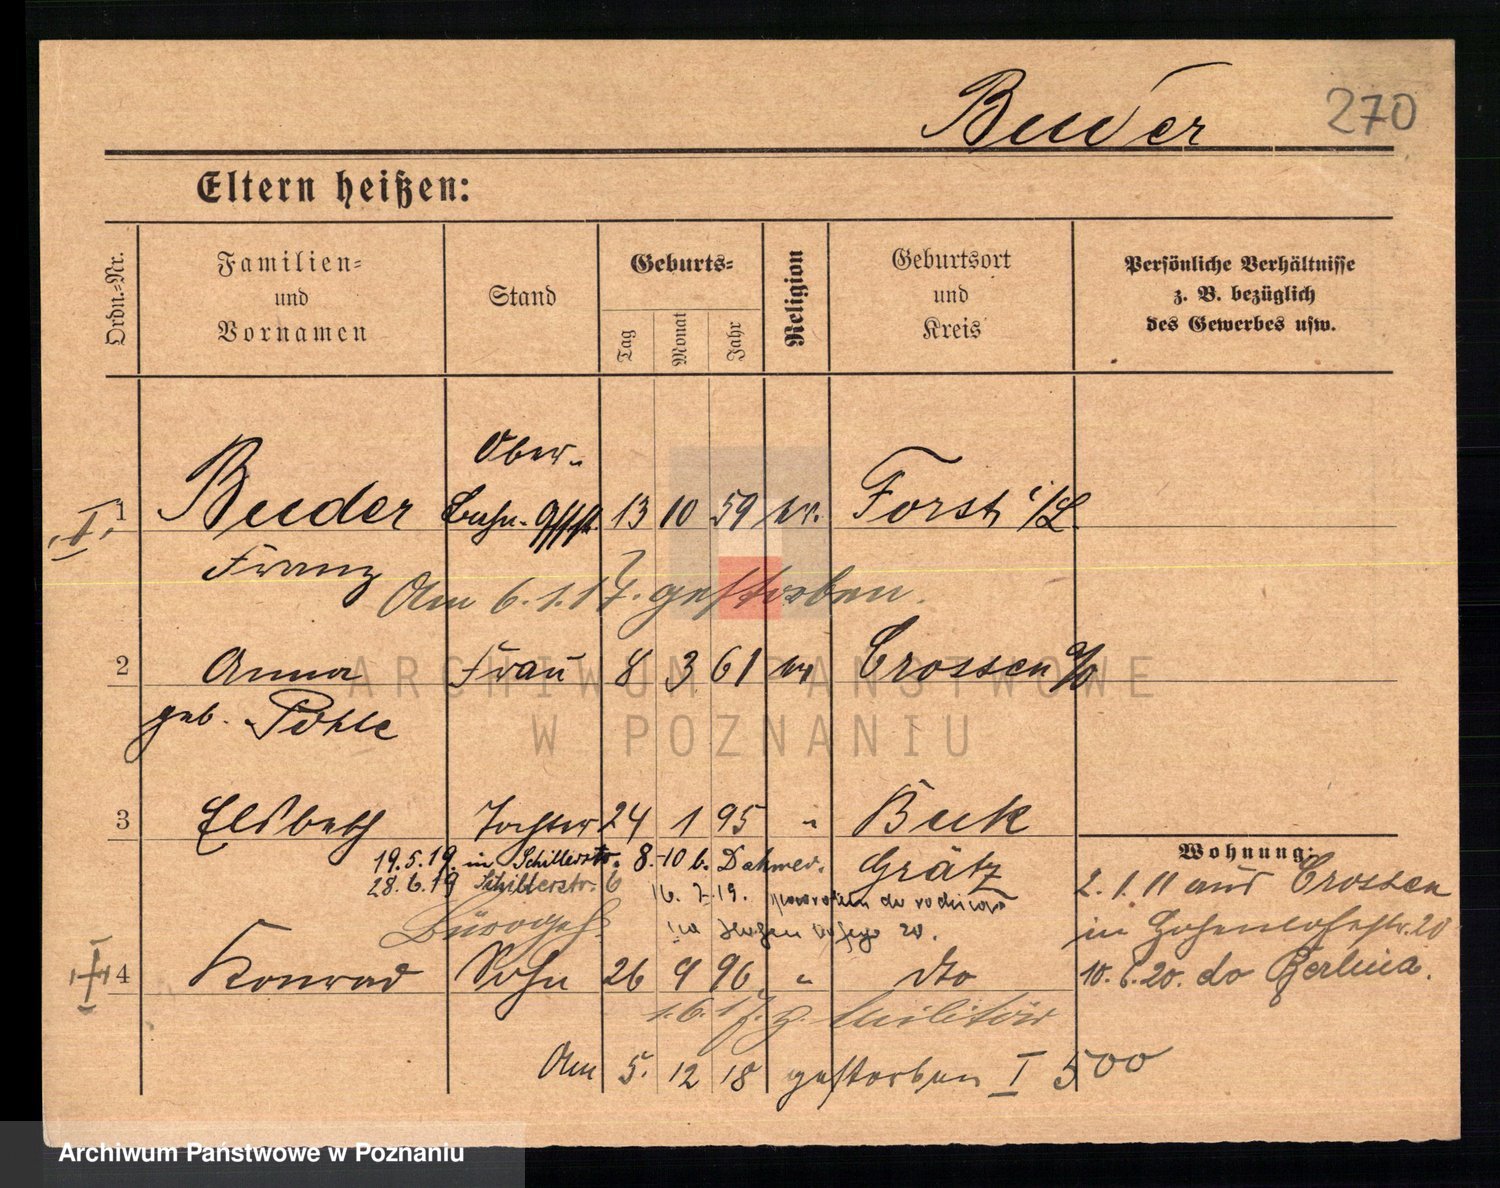 Buder 270
Eltern heißen:
Ordn.-Nr.
Familien-
und
Vornamen
Stand
Geburts-
Tag
Monat
Jahr
Religion
Geburtsort
und
Kreis
Persönliche Verhältnisse
z. B. bezüglich
des Gewerbes usw.
Ober-
1 Buder 13 10 59 Forst i/L
Franz
Am 6.1.17. gestorben.
2 Anna Frau 8 3 61 Crossen a/O
geb. Pohle
3 Elsbeth Tochter 24 1 95 " Buk
Grätz
19.5.19. in Schillerstr. 8.-10 b.
28.6.19 Schillerstr. 6
16. 7.19.
Bürogeh.
4 Konrad Sohn 26 9 96 " dto
1.6.17. z. Militär
Am 5. 12 18 gestorben I 500
Wohnung:
2. 1. 11 aus Crossen
in Hohenlohestr. 20
10. 6. 20. do Berlina.
ARCHIWUM PAŃSTWOWE
W POZNANIU
Archiwum Państwowe w Poznaniu